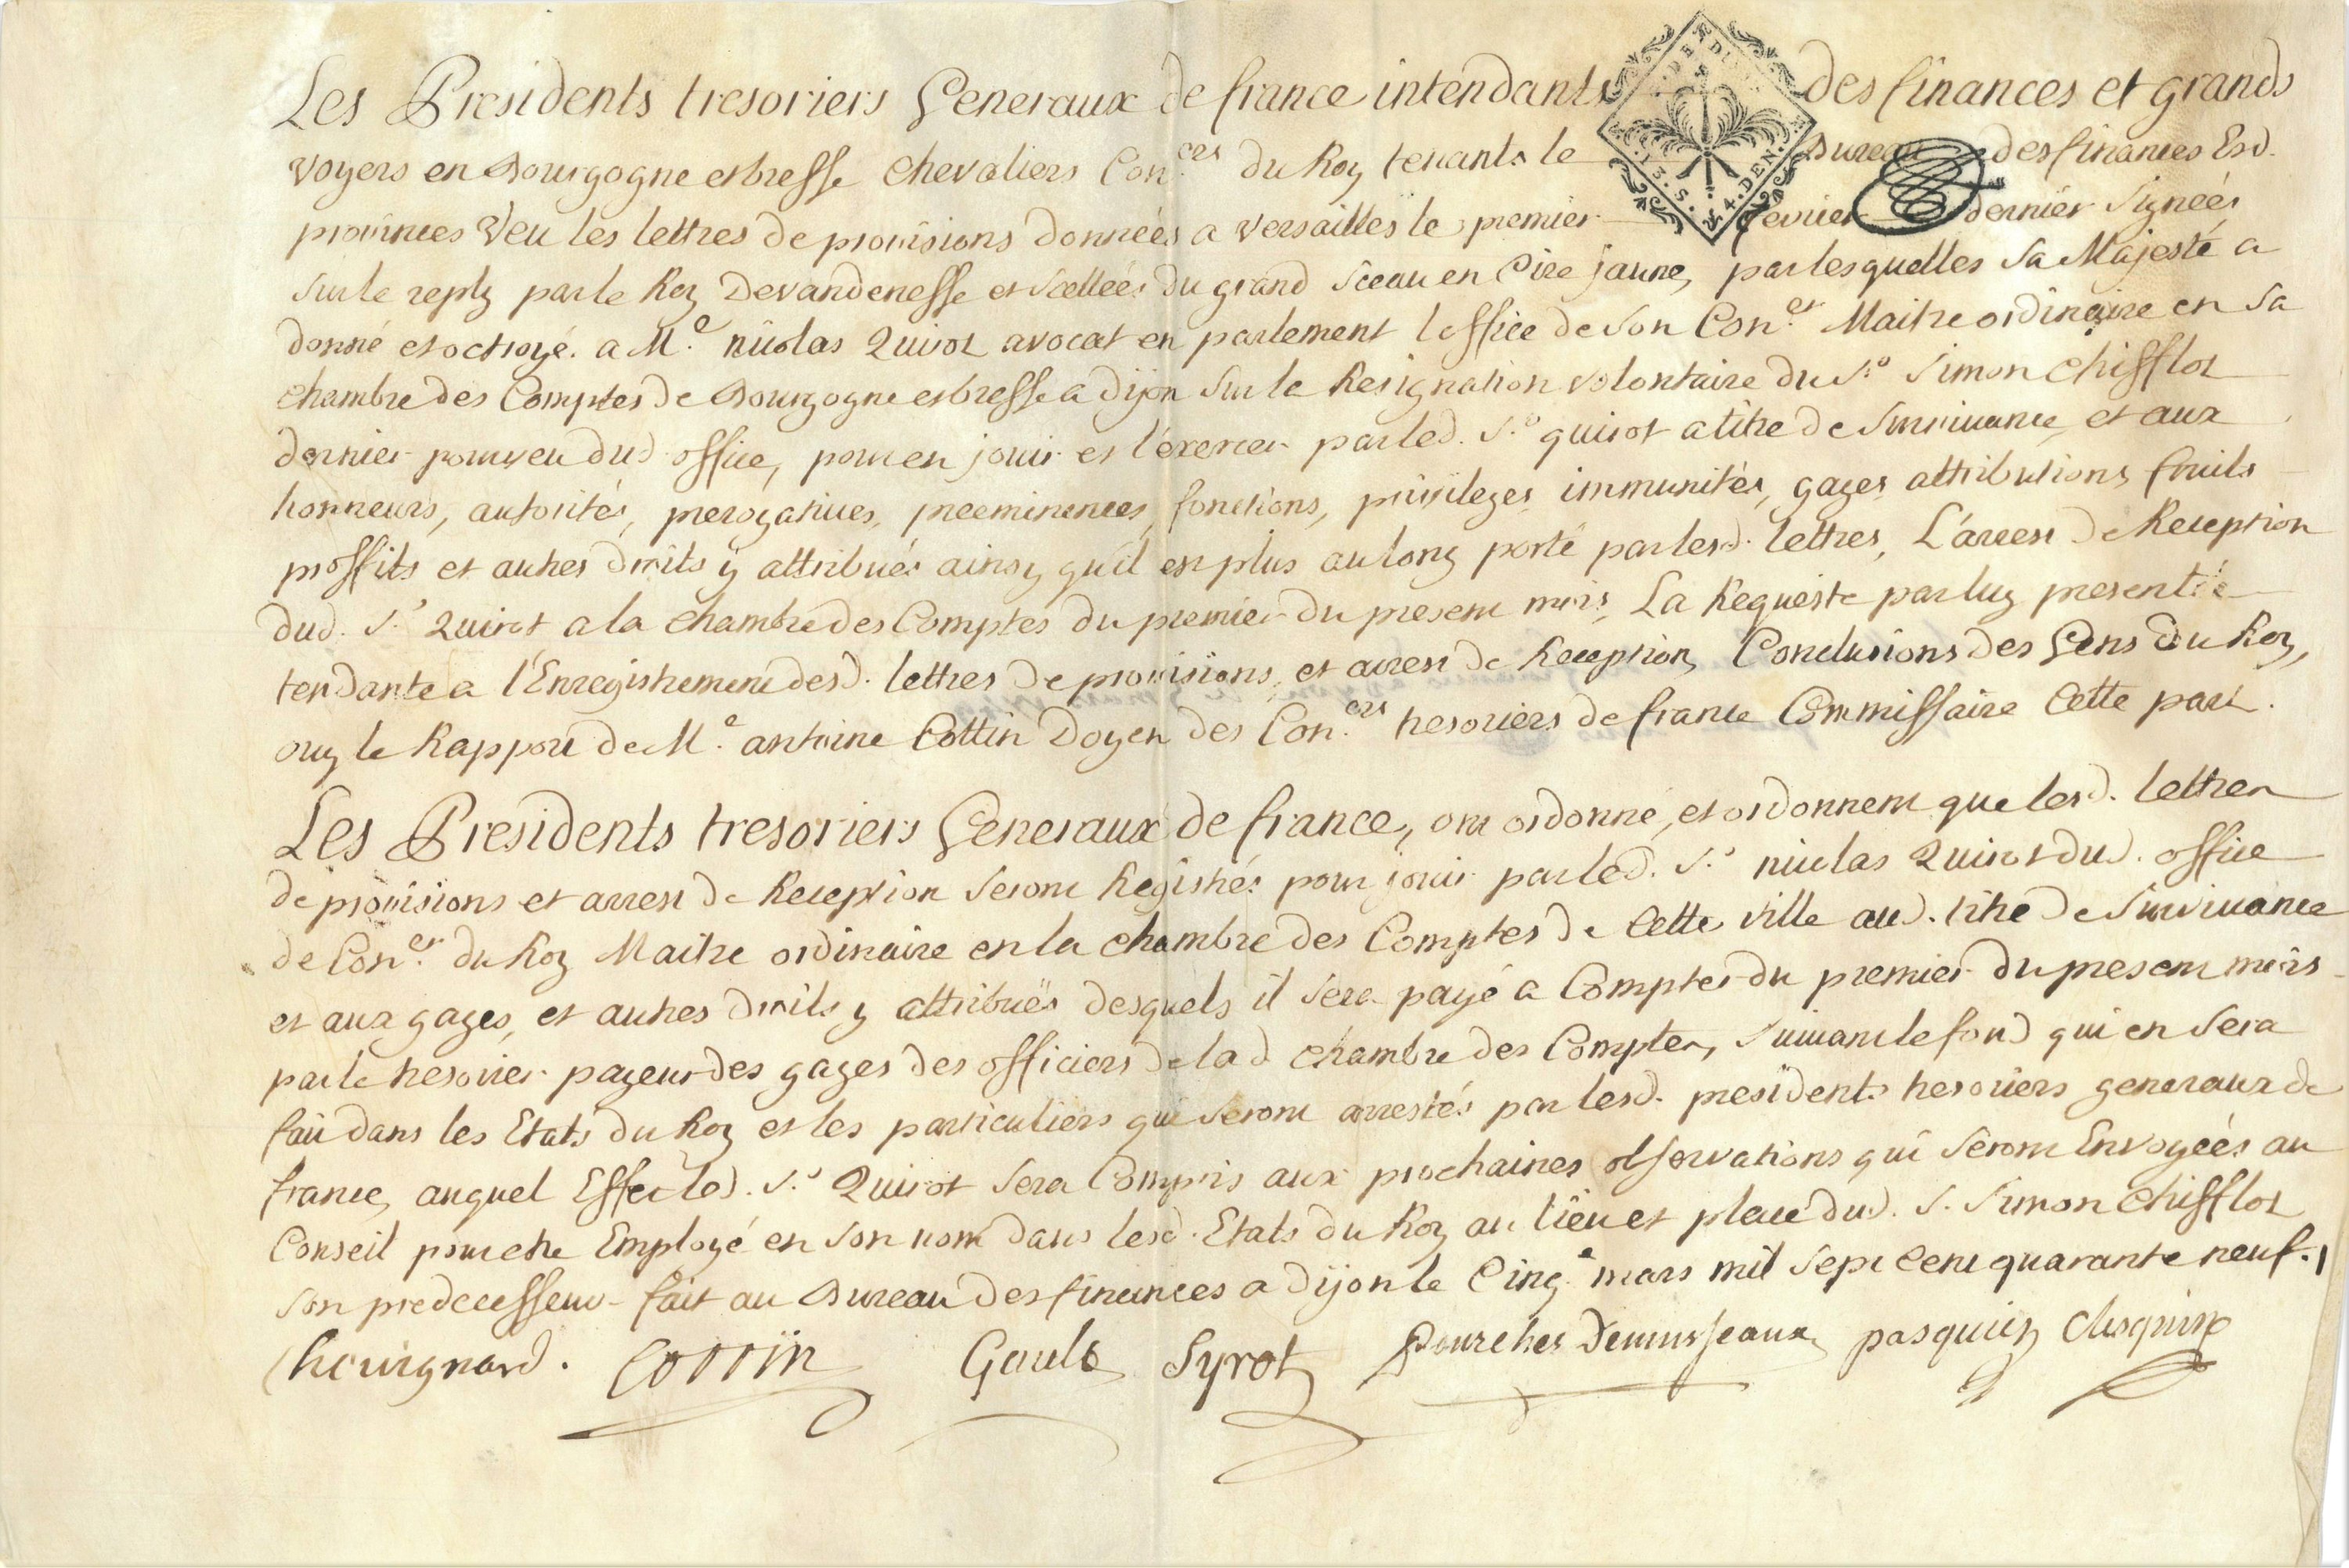 Les Presidents tresoriers Generaux de france intendants des finances et grands
voyers en Bourgogne et bresse Chevaliers Con.ers du Roy tenants le Bureau des finances Esd.
provinces Veu les lettres de provisions données a versailles le premier fevrier dernier signées
sur le reply par le Roy Devandenesse et scellées du grand sceau en Cire jaune, par lesquelles sa Majesté a
donné et octroyé. a M.e nicolas Quirot avocat en parlement l'office de son Con.er Maitre ordinaire en sa
chambre des Comptes de Bourgogne et bresse a dijon sur la Resignation volontaire du S.r Simon Chifflot
dernier pourveu dud. office, pour en jouir et l'exercer par led. S.r quirot a titre de survivance, et aux
honneurs, autorités, prerogatives, preeminences, fonctions, privileges, immunités, gages attributions, fruits
proffits et autres droits y attribués ainsy qu'il est plus au long porté par lesd. lettres, L'arrest de Reception
dud. S.r Quirot a la chambre des Comptes du premier du present mois, La Requeste par luy presentée
tendante a l'Enregistrement desd. lettres de provisions, et arrest de Reception, Conclusions des Gens du Roy,
ouy le Rapport de M.e antoine Cottin Doyen des Con.ers tresoriers de france Commissaire Cette part.
Les Presidents tresoriers Generaux de france, ont ordonné, et ordonnent que lesd. lettres
de provisions et arrest de Reception seront Registrés pour jouir par led. S.r nicolas Quirot dud. office
de Con.er du Roy Maitre ordinaire en la chambre des Comptes de Cette ville aud. titre de survivance
et aux gages, et autres droits y attribués desquels il sera payé a Compter du premier du present mois
par le tresorier payeur des gages des officiers de lad chambre des Comptes, suivant le fond qui en sera
fait dans les Etats du Roy et les particuliers qui seront arrestés par lesd. presidents tresoriers generaux de
france, auquel Effect led. S.r Quirot sera Compris aux prochaines observations qui seront Envoyées au
Conseil pour etre Employé en son nom dans lesd. Etats du Roy au lieu et place dud. S. Simon Chifflot
son predecesseur fait au Bureau des finances a dijon le Cinq.e mars mil sept cent quarante neuf.
Chevignard. Cottin Gault Syrot pasquier
13. S. 4. DEN.